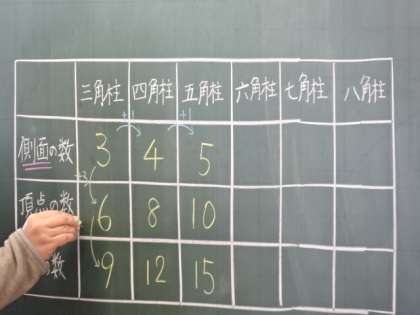 三角柱 四角柱 五角柱 六角柱 七角柱 八角柱
+1 +1
側面の数 3 4 5
+3
頂点の数 6 8 10
の数 9 12 15